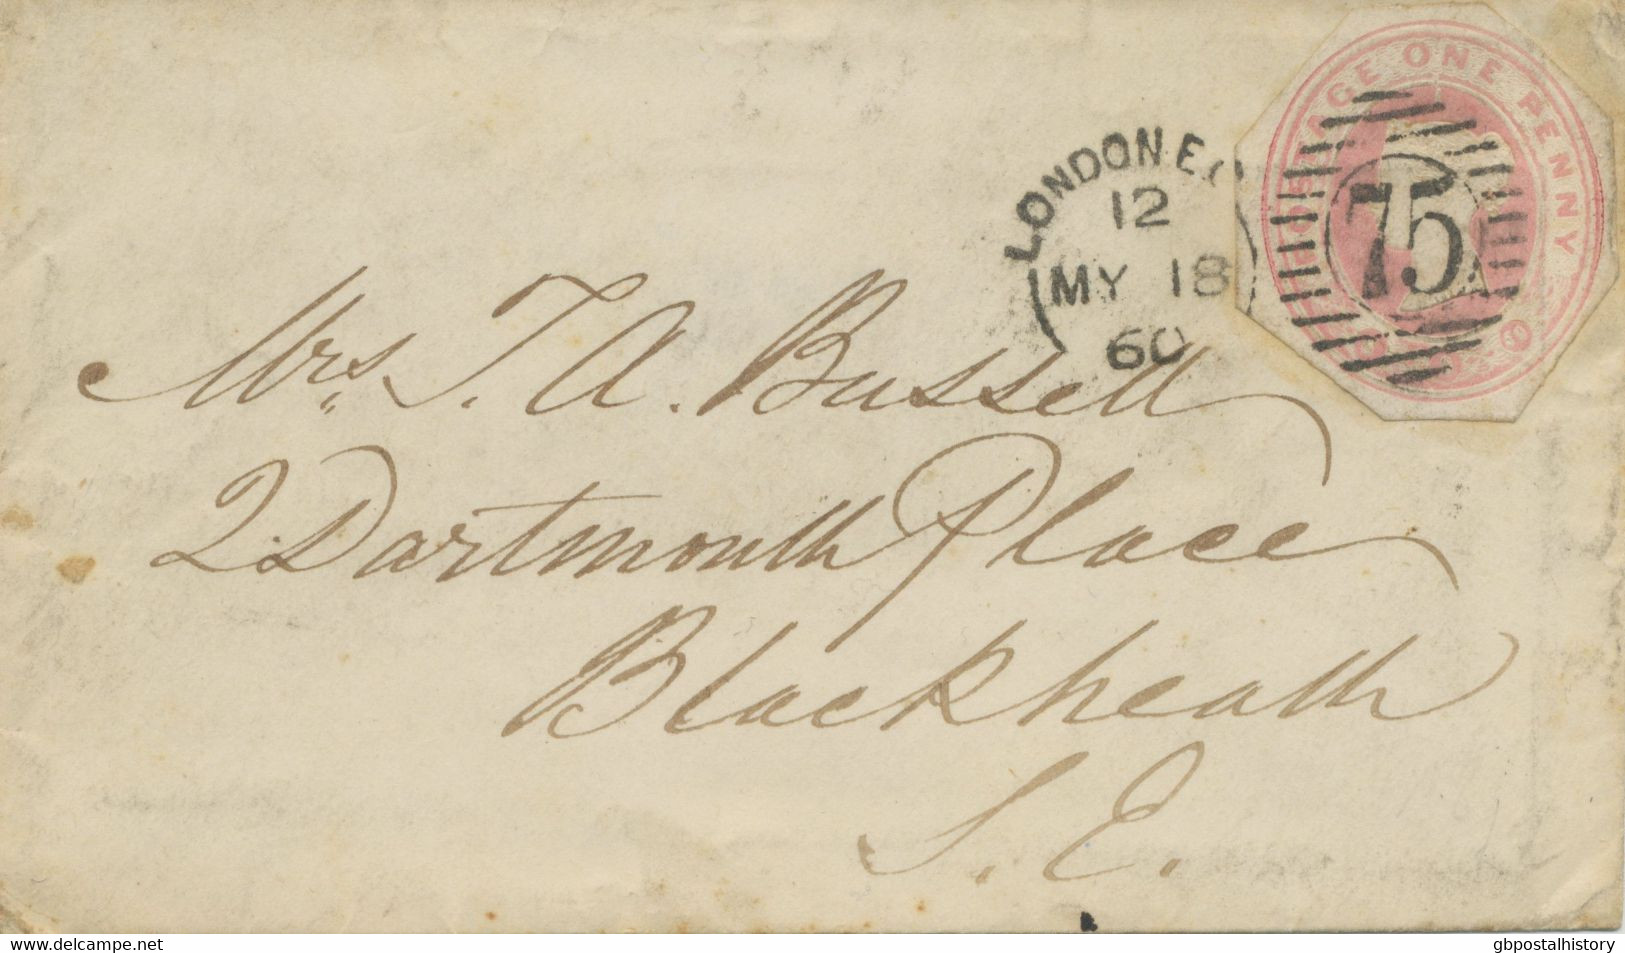 POSTAGE ONE PENNY
LONDON E.C
12
MY 18
60
75
Mrs. T. A. Bussell
2 Dartmouth Place
Blackheath
S. E.
delcampe.net
gbpostalhistory